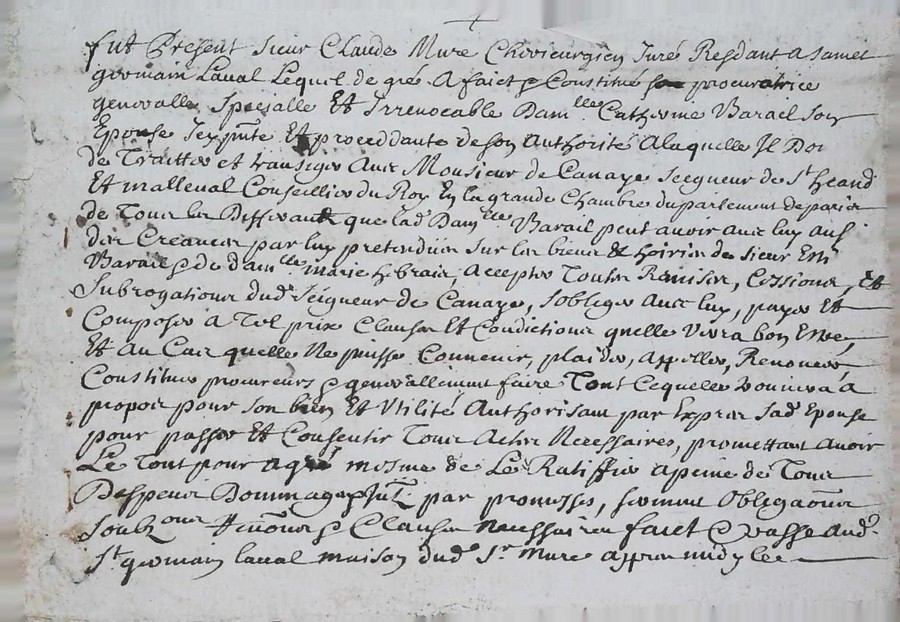 fut Present sieur Claude Mure Chirieurgien Juré Resdant a
germain Laval Lequel de gré A faict & Constitué procuratrice
generalle Specialle Et Irrevocable Damlle Catherine Barail son
Epouse Et proceddante de son Authorité A laquelle Il Don
de Traitter et transiger Avec Monsieur de Canaye Seigneur de St heand
Et malleval Conseillier du Roy En la grande Chambre du parlement de paris
de Tous les Differants que lad Damlle Barail peut avoir avec luy
des Creances par luy pretendues sur les biens & hoirie de sieur
Barail & de damlle marie hebrais, Accepter Toutes Remises, Cessions, Et
Subrogations dud Seigneur de Canaye, sobliger avec luy, payer Et
Composer a Tel prix Clauses Et Condictions quelle verra bon Estre,
Et Au Cas quelle Ne puisse Convenir, plaider, appeller, Renoncer,
Constituer procureurs & generallement faire Tout Cequelle a
propos pour son bien Et Utilité Authorisant par Expres sad Epouse
pour passer Et Consentir Tous Actes Necessaires, promettant avoir
Le Tout pour agréé mesme de Le Ratiffier a peine de Tous
Despens Dommages par promesses, serment Obligaõns
& Clauses necessaires faict & passé Aud
St germain laval maison dud Sr Mure apres midy le